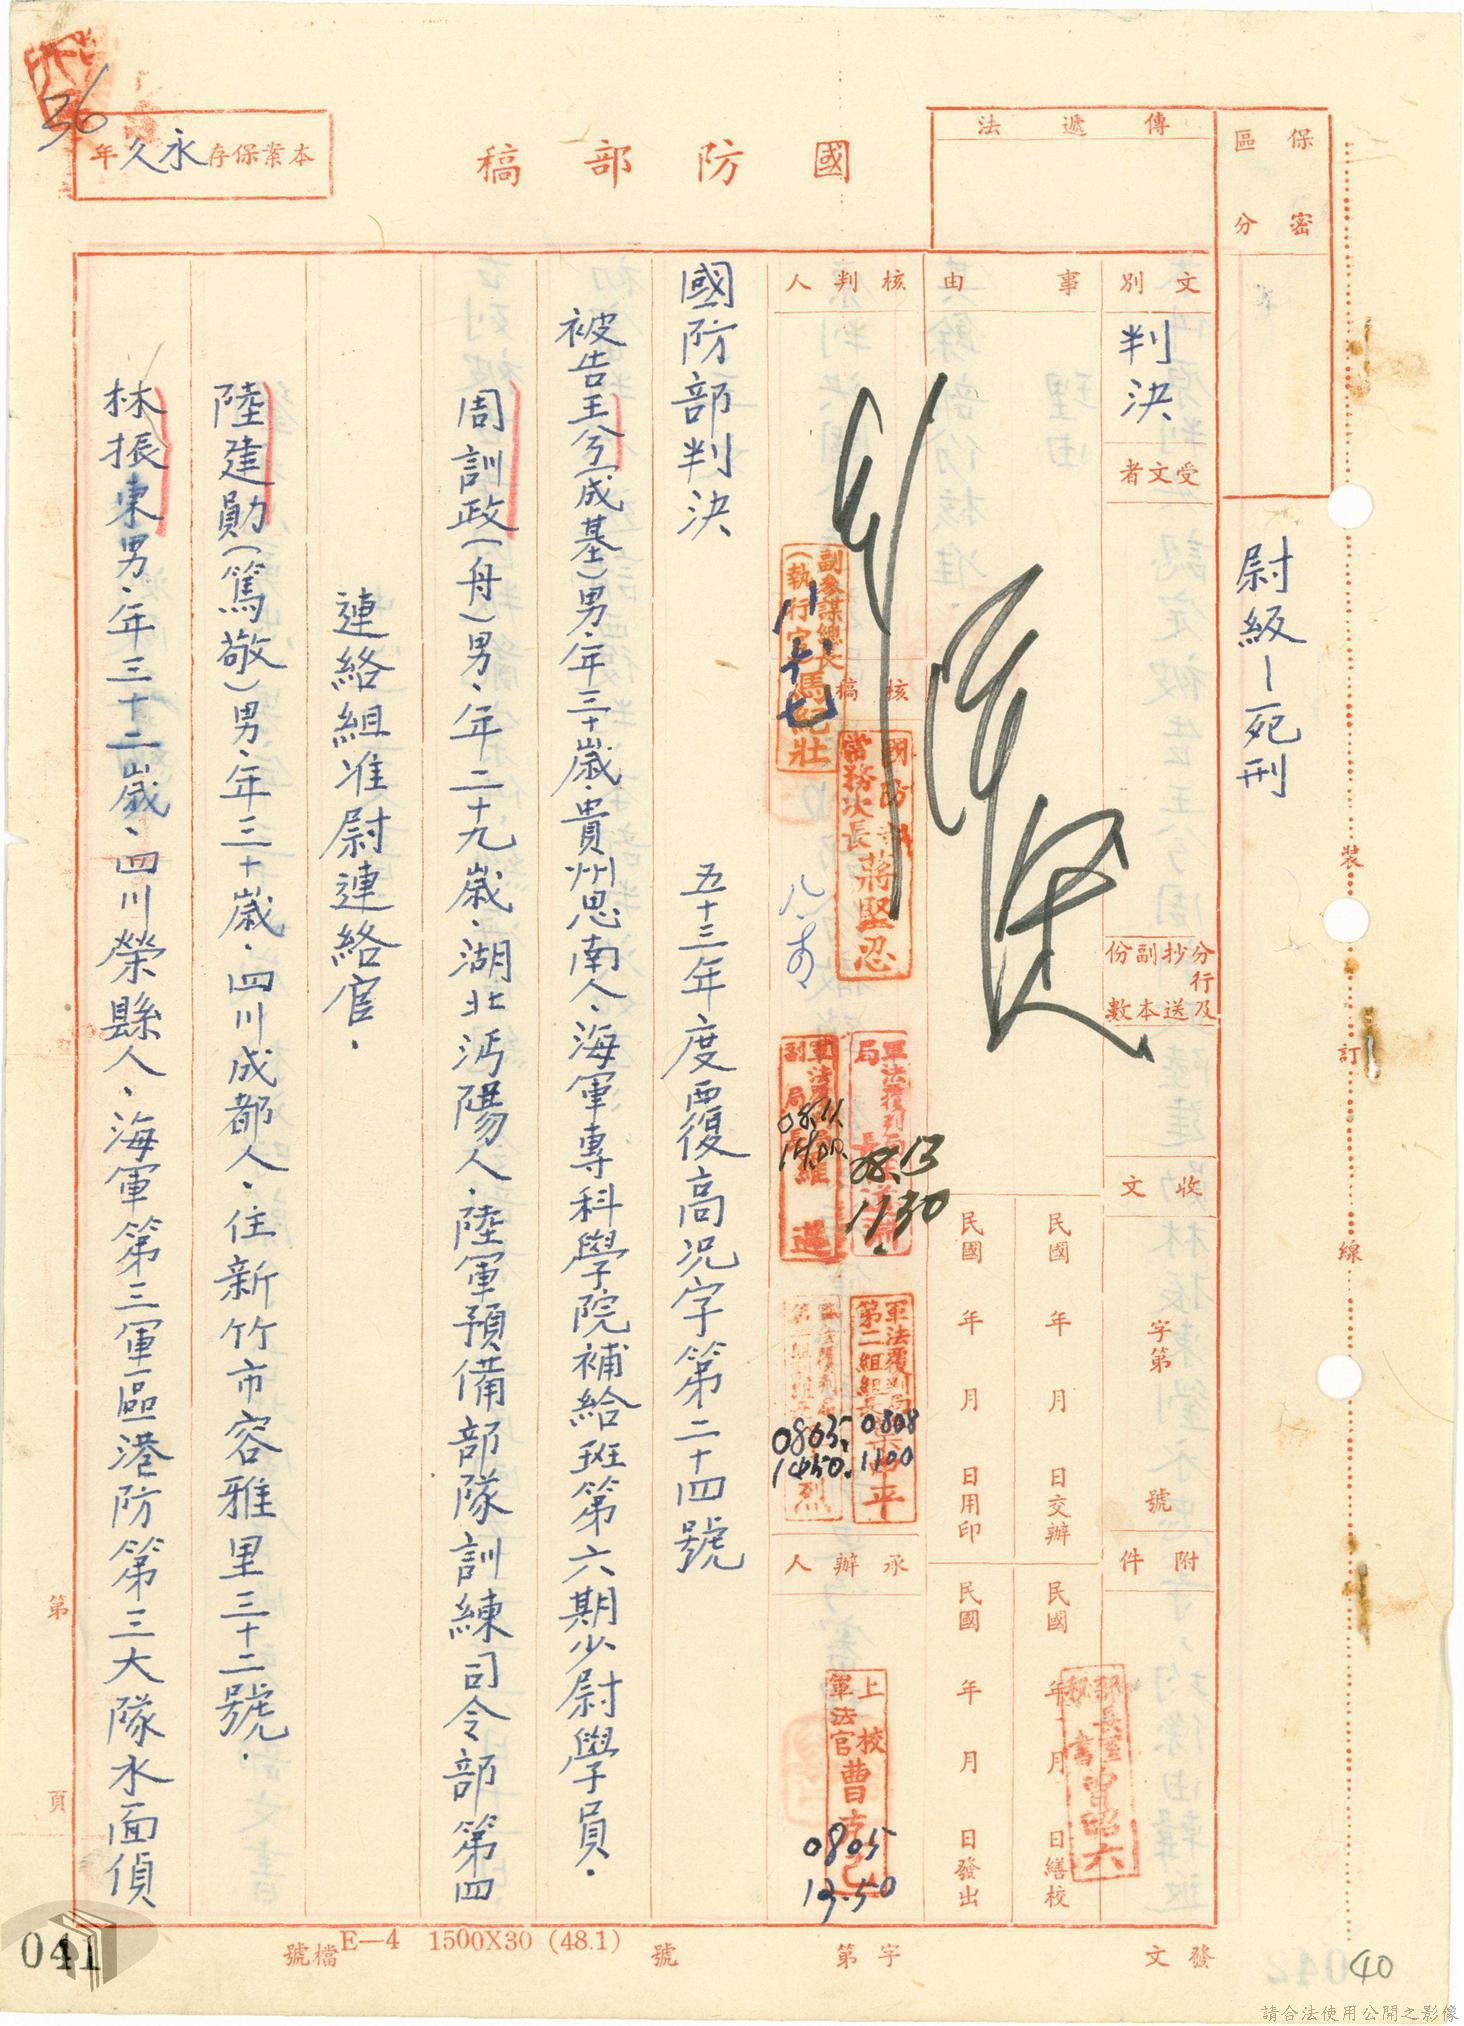 36
本案保存永久年
國防部稿
傳遞法
保密區分
文別
判決
受文者
分行及抄送副本份數
收文
字第
號
附件
事由
民國 年 月 日交辦
民國 年 月 日繕校
民國 年 月 日用印
民國 年 月 日發出
部長室秘書曾昭六
核判人
核稿
副參謀總長(執行官)馬紀壯
八、十七
國防部常務次長蔣堅忍
軍法覆判局局長
08.13
1130
軍法覆判局副局長羅
軍法覆判局第二組組長
0808
1100
0805
1450.
承辦人
上校軍法官曹
0805
13.50
尉級—死刑
國防部判決
五十三年度覆高況字第二十四號
被告王兮(成基)男、年三十歲、貴州思南人、海軍專科學院補給班第六期少尉學員.
周訓政(舟)男、年二十九歲、湖北沔陽人、陸軍預備部隊訓練司令部第四
連絡組准尉連絡官.
陸建勛(篤敬)男、年三十歲、四川成都人、住新竹市容雅里三十二號.
林振東男、年三十二歲、四川榮縣人、海軍第三軍區港防第三大隊水面偵
裝
訂
線
第 頁
發文 字第 號
檔號
E—4 1500X30 (48.1)
041
40
請合法使用公開之影像